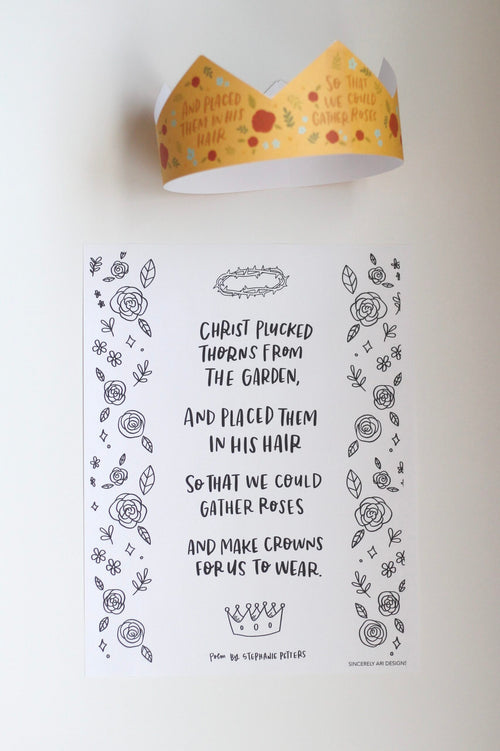 AND PLACED
THEM IN HIS
HAIR
SO THAT
WE COULD
GATHER ROSES
CHRIST PLUCKED
THORNS FROM
THE GARDEN,
AND PLACED THEM
IN HIS HAIR
SO THAT WE COULD
GATHER ROSES
AND MAKE CROWNS
FOR US TO WEAR.
Poem BY STEPHANIE PETERS
SINCERELY ARI DESIGNS